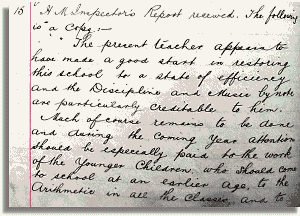 15 H. M. Inspector's Report received. The following
is a Copy:—
"The present teacher appears to
have made a good start in restoring
this school to a state of efficiency
and the Discipline and Music by note
are particularly creditable to him.
Much of course remains to be done
and during the coming Year attention
should be especially paid to the work
of the Younger Children, who should come
to school at an earlier age, to the
Arithmetic in all the Classes, and to